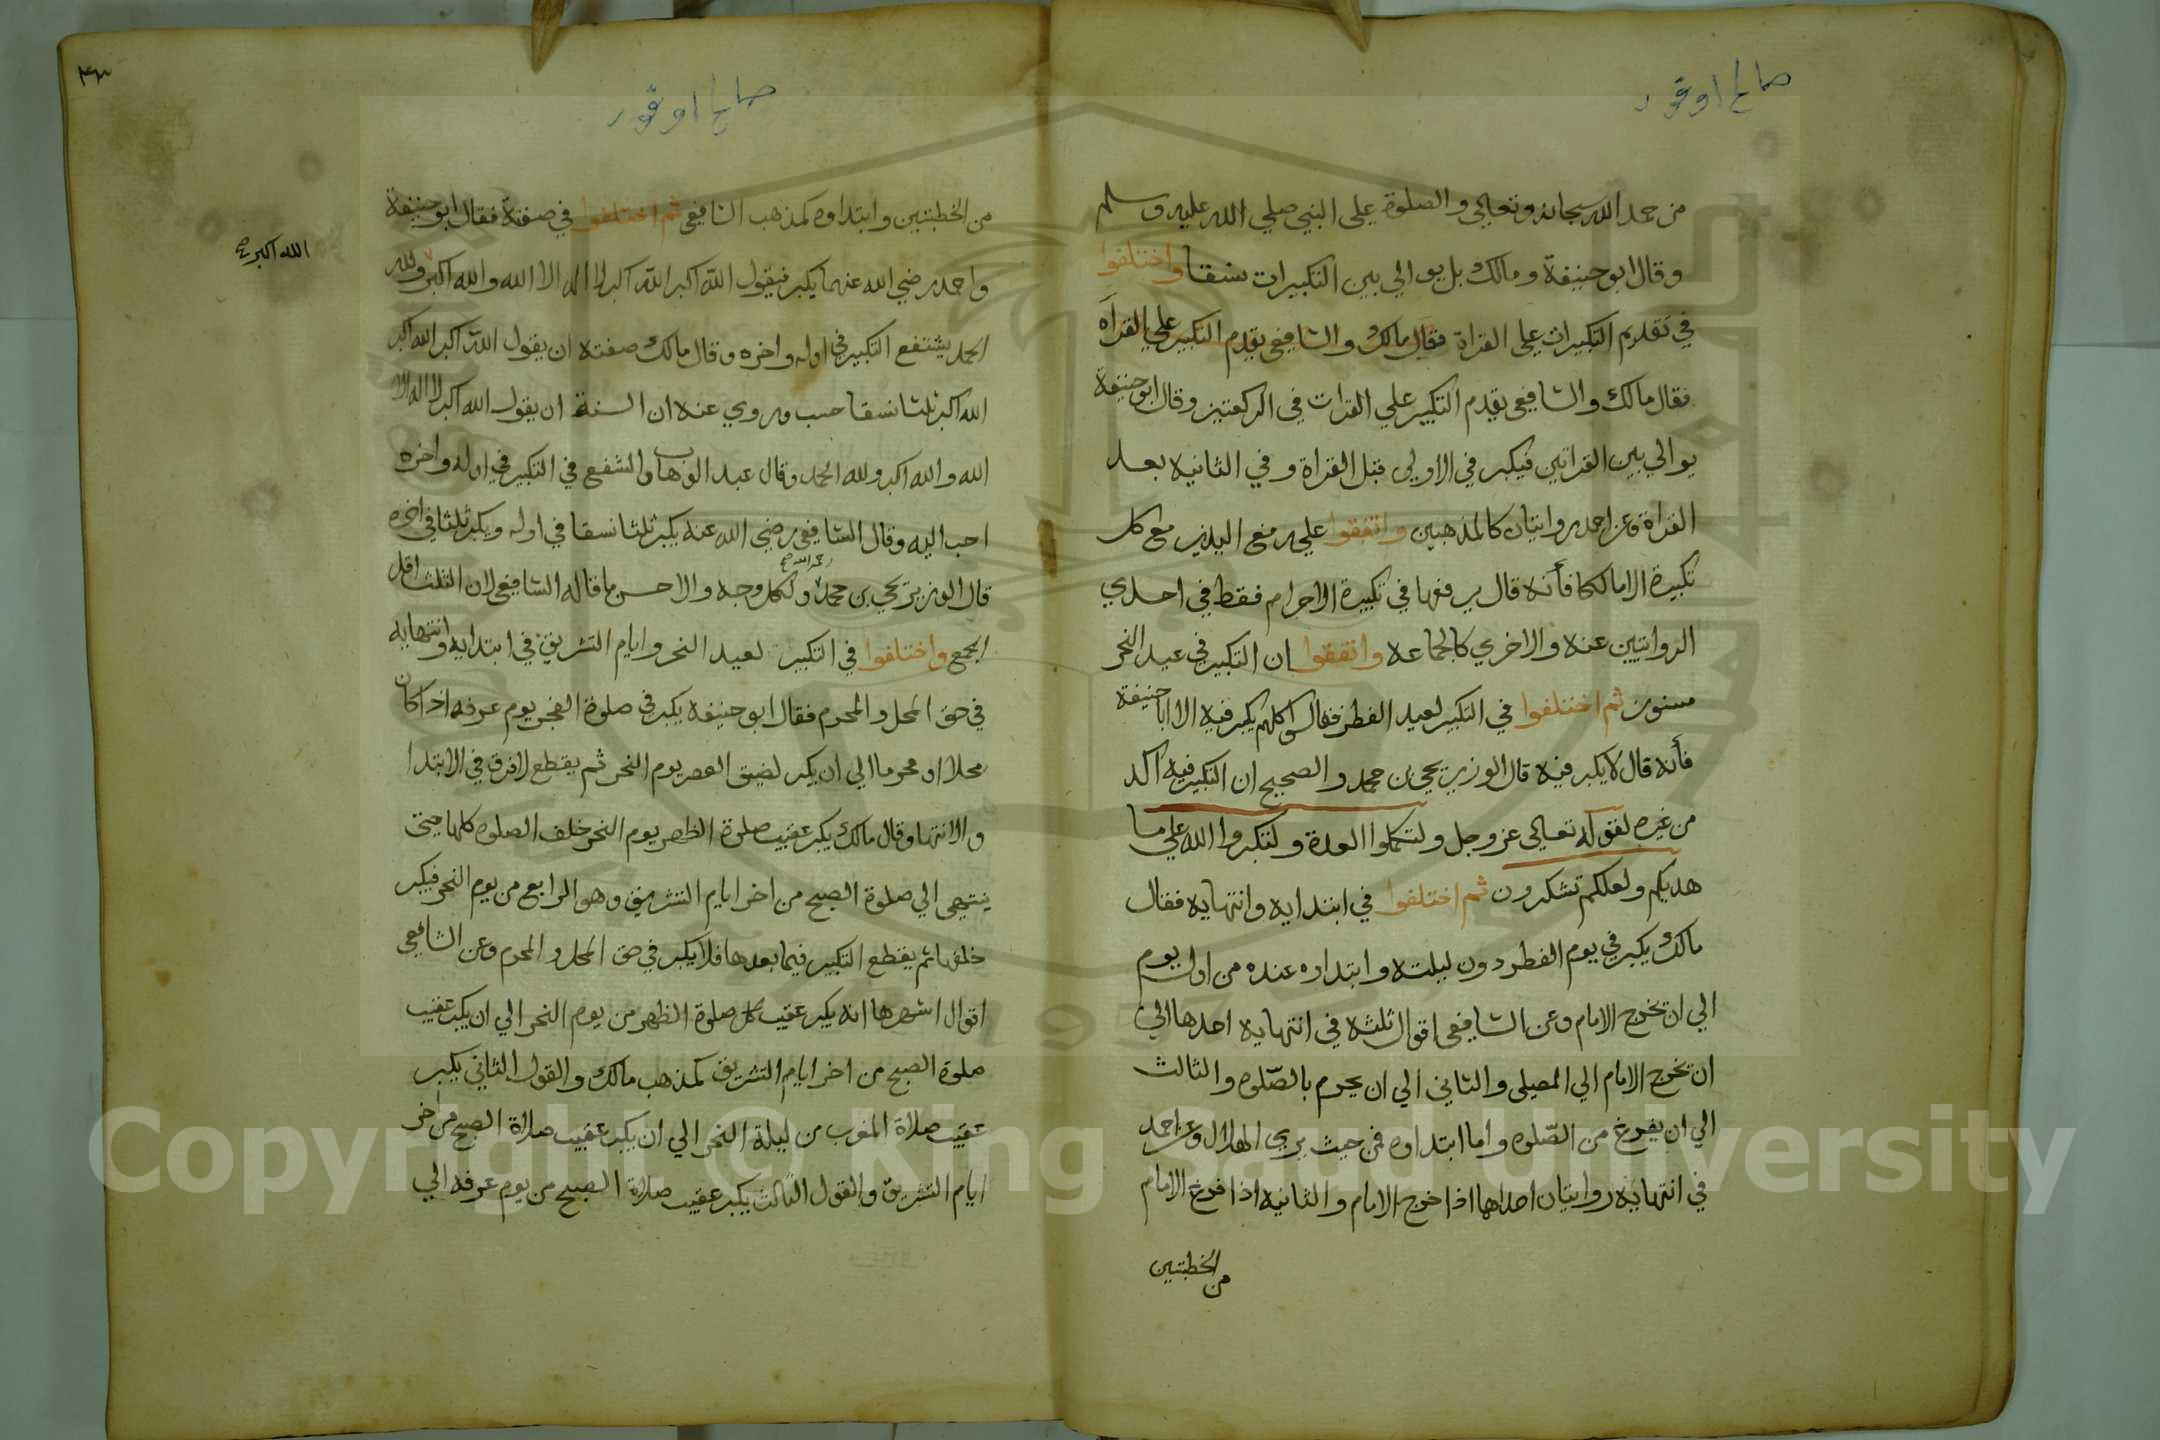 من حمد الله سبحانه وتعالى والصلوة على النبي صلي الله عليه وسلم
وقال ابو حنيفة ومالك بل يوالي بين التكبيرات نسقا واختلفوا
في تقديم التكبيرات على القراة فقال مالك والشافعي يقدم التكبير علي القراة
فقال مالك والشافعي يقدم التكبير علي القرات في الركعتين وقال ابو حنيفة
يوالي بين القراتين فيكبر في الاولى قبل القراة وفي الثانية بعد
القراة وعن احمد روايتان كالمذهبين واتفقوا علي رفع اليدين مع كل
تكبيرة الا مالكا فأنه قال يرفعها في تكبيرة الاحرام فقط في احدي
الروايتين عنه والاخري كالجماعة واتفقوا ان التكبير في عيد النحر
مسنون ثم اختلفوا في التكبير لعيد الفطر فقالوا كلهم يكبر فيه الا ابا حنيفة
فأنه قال لا يكبر فيه قال الوزير يحي بن محمد والصحيح ان التكبير فيه اكد
من غيره لقوله تعالى عز وجل ولتكملوا العدة ولتكبروا الله على ما
هديكم ولعلكم تشكرون ثم اختلفوا في ابتدايه وانتهايه فقال
مالك يكبر في يوم الفطر دون ليلته وابتداوه عنده من اول يوم
الي ان تخرج الامام وعن الشافعي اقوال ثلثة في انتهايه احدها الي
ان يخرج الامام الي المصلى والثاني الي ان يحرم بالصّلوه والثالث
الي ان يفرغ من الصّلوه واما ابتداوه فمن حيث يرى الهلال وعن احمد
في انتهايه روايتان احداها اذا خرج الامام والثانيه اذا فرغ الامام
من الخطبتين
صالح اوقور
صالح اوقور
٤٣
من الخطبتين وابتداوه كمذهب الشافعي ثم اختلفوا في صفته فقال ابو حنيفة
واحمد رضي الله عنهما يكبر فيقول الله اكبر الله اكبر لا اله الا الله والله اكبر ولله
الله اكبر صح
الحمد يشفع التكبير في اوله واخره وقال مالك صفته ان يقول الله اكبر الله اكبر
الله اكبر ثلثا نسقا حسب وروي عنه ان السنة ان يقول الله اكبر لا اله الا
الله والله اكبر ولله الحمد وقال عبد الوهاب والشفع في التكبير في اوله واخره
احب اليه وقال الشافعي رضي الله عنه يكبر ثلثا نسقا في اوله ويكبر ثلثا في اخره
قال الوزير يحي بن محمد رحمه الله صح ولكل وجه والاحسن ما قاله الشافعي لان الثلث اقل
الجمع واختلفوا في التكبير لعيد النحر وايام التشريق في ابتدايه وانتهايه
في حق المحل والمحرم فقال ابو حنيفة يكبر في صلوة الفجر يوم عرفه اذا كان
محلا او محرما الي ان يكبر لضيق العصر يوم النحر ثم يقطع لا فرق في الابتدا
والانتها وقال مالك يكبر عقيب صلوة الظهر يوم النحر خلف الصلوه كلها حتى
ينتهي الي صلوة الصبح من اخر ايام التشريق وهو الرابع من يوم النحر فيكبر
خلفها ثم يقطع التكبير فيما بعدها فلا يكبر في حق المحل والمحرم وعن الشافعي
اقوال اشهرها انه يكبر عقيب كل صلوة الظهر من يوم النحر الي ان يكبر عقيب
صلوة الصبح من اخر ايام التشريق كمذهب مالك والقول الثاني يكبر
عقيب صلاة المغرب من ليلة النحر الي ان يكبر عقيب صلاة الصبح من اخر
ايام التشريق والقول الثالث يكبر عقيب صلاة الصبح من يوم عرفه الي
Copyright © King Saud University